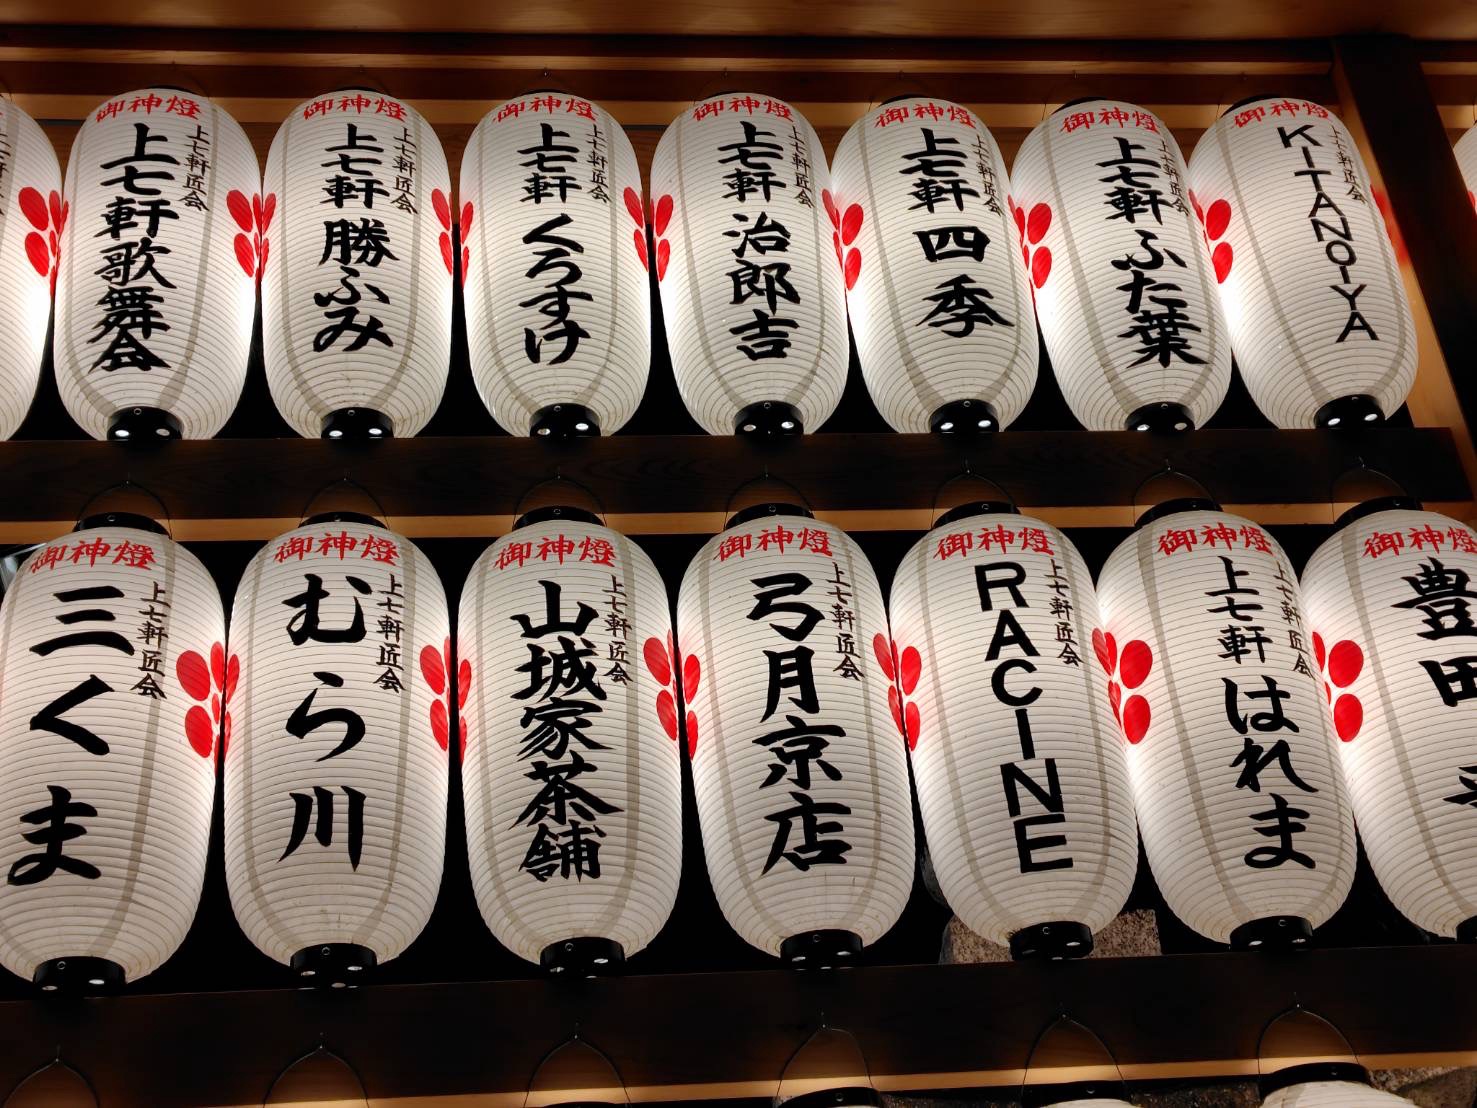 御神燈
上七軒匠会
上七軒歌舞会
御神燈
上七軒匠会
上七軒勝ふみ
御神燈
上七軒匠会
上七軒くろすけ
御神燈
上七軒匠会
上七軒治郎吉
御神燈
上七軒匠会
上七軒四季
御神燈
上七軒匠会
上七軒ふた葉
御神燈
上七軒匠会
KITANOIYA
御神燈
上七軒匠会
三くま
御神燈
上七軒匠会
むら川
御神燈
上七軒匠会
山城家茶舗
御神燈
上七軒匠会
弓月京店
御神燈
上七軒匠会
RACINE
御神燈
上七軒匠会
上七軒はれま
御神燈
豊田